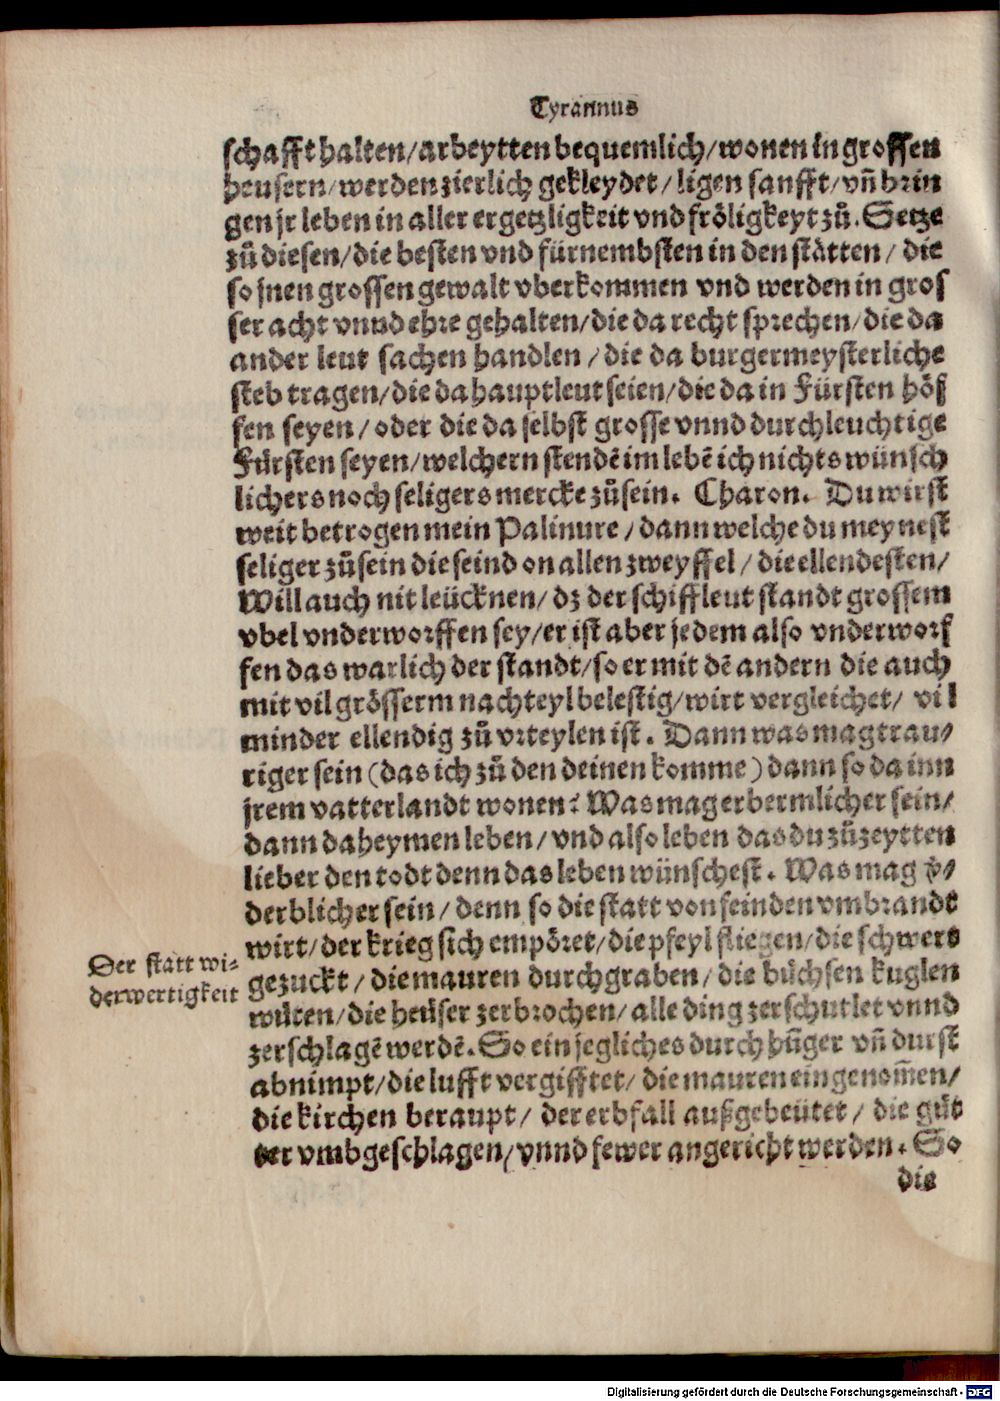 Tyrannus
schafft halten/ arbeytten bequemlich/ wonen in grossen
heusern/ werden zierlich gekleydet/ ligen sanfft/ vñ brin
gen jr leben in aller ergetzligkeit vnd fröligkeyt zů. Setze
zů diesen/ die besten vnd fürnembsten in den stätten/ die
so jnen grossen gewalt vberkommen vnd werden in gros
ser acht vnnd ehre gehalten/ die da recht sprechen/ die da
ander leut sachen handlen/ die da burgermeysterliche
steb tragen/ die da hauptleut seien/ die da in Fürsten höf
fen seyen/ oder die da selbst grosse vnnd durchleuchtige
Fürsten seyen/ welchern stendē im lebē ich nichts wünsch
lichers noch seligers mercke zůsein. Charon. Du wirst
weit betrogen mein Palinure/ dann welche du meynest
seliger zůsein die seind on allen zweyffel/ die ellendesten/
Will auch nit leücknen/ dz der schiffleut standt grossem
vbel vnderworffen sey/ er ist aber jedem also vnderworf
fen das warlich der standt/ so er mit dē andern die auch
mit vil grösserm nachteyl belestig/ wirt vergleichet/ vil
minder ellendig zů vrteylen ist. Dann was mag trau⸗
riger sein (das ich zů den deinen komme) dann so da inn
jrem vatterlandt wonen? Was mag erbermlicher sein/
dann daheymen leben/ vnd also leben das du zůzeytten
lieber den todt denn das leben wünschest. Was mag v̄⸗
derblicher sein/ denn so die statt von feinden vmbrandt
wirt/ der krieg sich empöret/ die pfeyl fliegen/ die schwert
Der statt wi⸗
derwertigkeit
gezuckt/ die mauren durchgraben/ die büchsen kuglen
wüten/ die heüser zerbrochen/ alle ding zerschutlet vnnd
zerschlagē werdē. So ein jegliches durch hũger vñ durst
abnimpt/ die lufft vergifftet/ die mauren eingenom̄en/
die kirchen beraupt/ der erbfall außgebeütet/ die güt
ter vmbgeschlagen/ vnnd fewer angericht werden. So
die
Digitalisierung gefördert durch die Deutsche Forschungsgemeinschaft - DFG